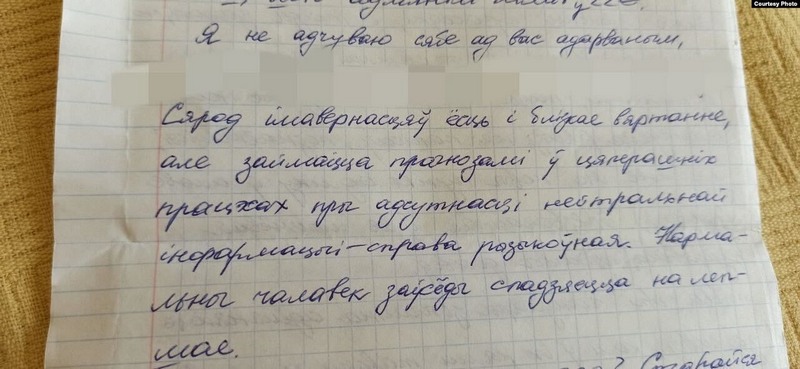 Courtesy Photo
Я не адчуваю сябе ад вас адарваным,
Сярод імавернасцяў ёсць і блізкае вяртанне,
але займацца прагнозамі ў цяперашніх
працэсах пры адсутнасці нейтральнай
інфармацыі – справа рызыкоўная. Нарма-
льны чалавек заўсёды спадзяецца на леп-
шае.
Старайся